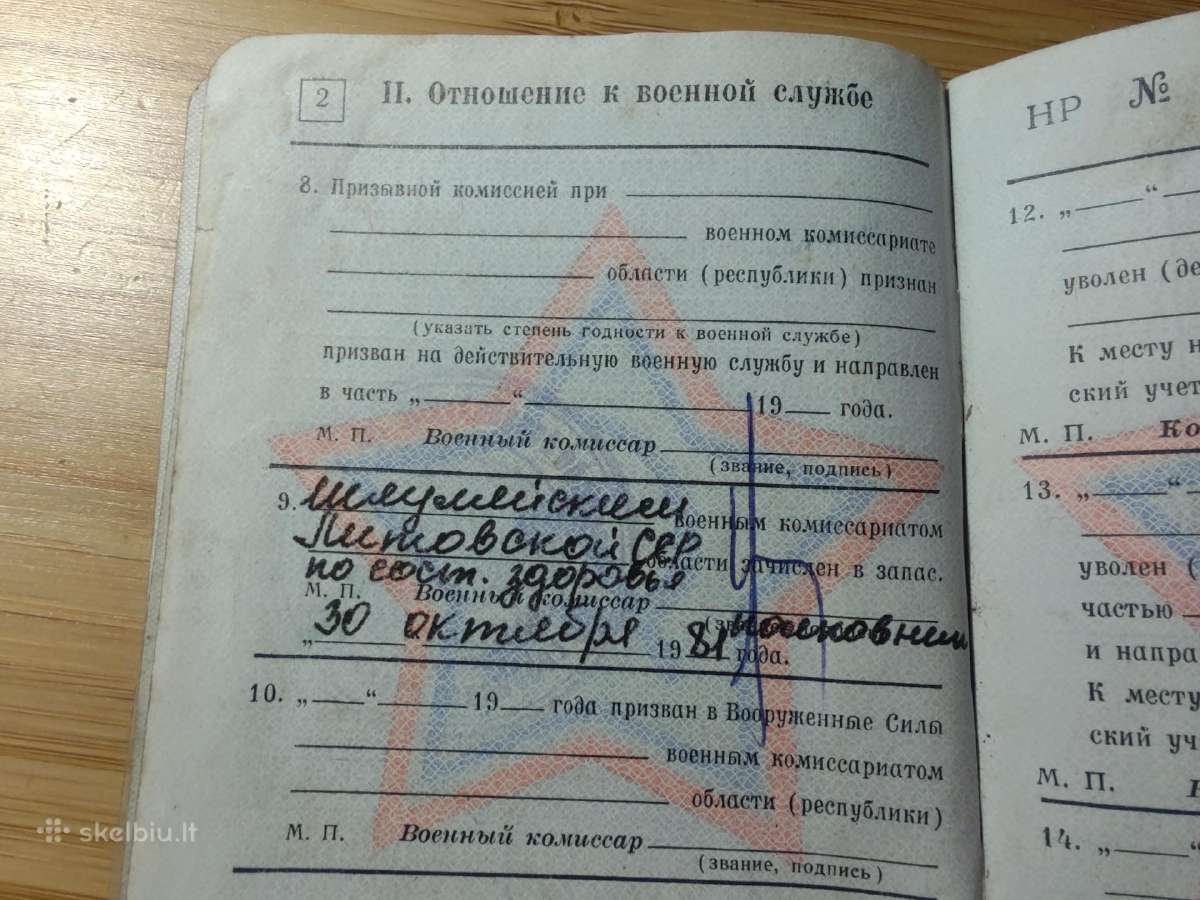 2
II. Отношение к военной службе
8. Призывной комиссией при
военном комиссариате
области (республики) признан
(указать степень годности к военной службе)
призван на действительную военную службу и направлен
в часть „ “ 19 года.
М. П. Военный комиссар
(звание, подпись)
9. Шяуляйским военным комиссариатом
Литовской ССР области зачислен в запас.
по сост. здоровья
М. П. Военный комиссар
„ 30 октября 1981 года.
10. „ “ 19 года призван в Вооруженные Силы
военным комиссариатом
области (республики)
М. П. Военный комиссар
(звание, подпись)
НР №
12. „ “
уволен (де
К месту н
ский учет
М. П. Ко
13. „ “
уволен (
частью
и напра
К месту
ский уч
М. П.
14. „ “
skelbiu.lt